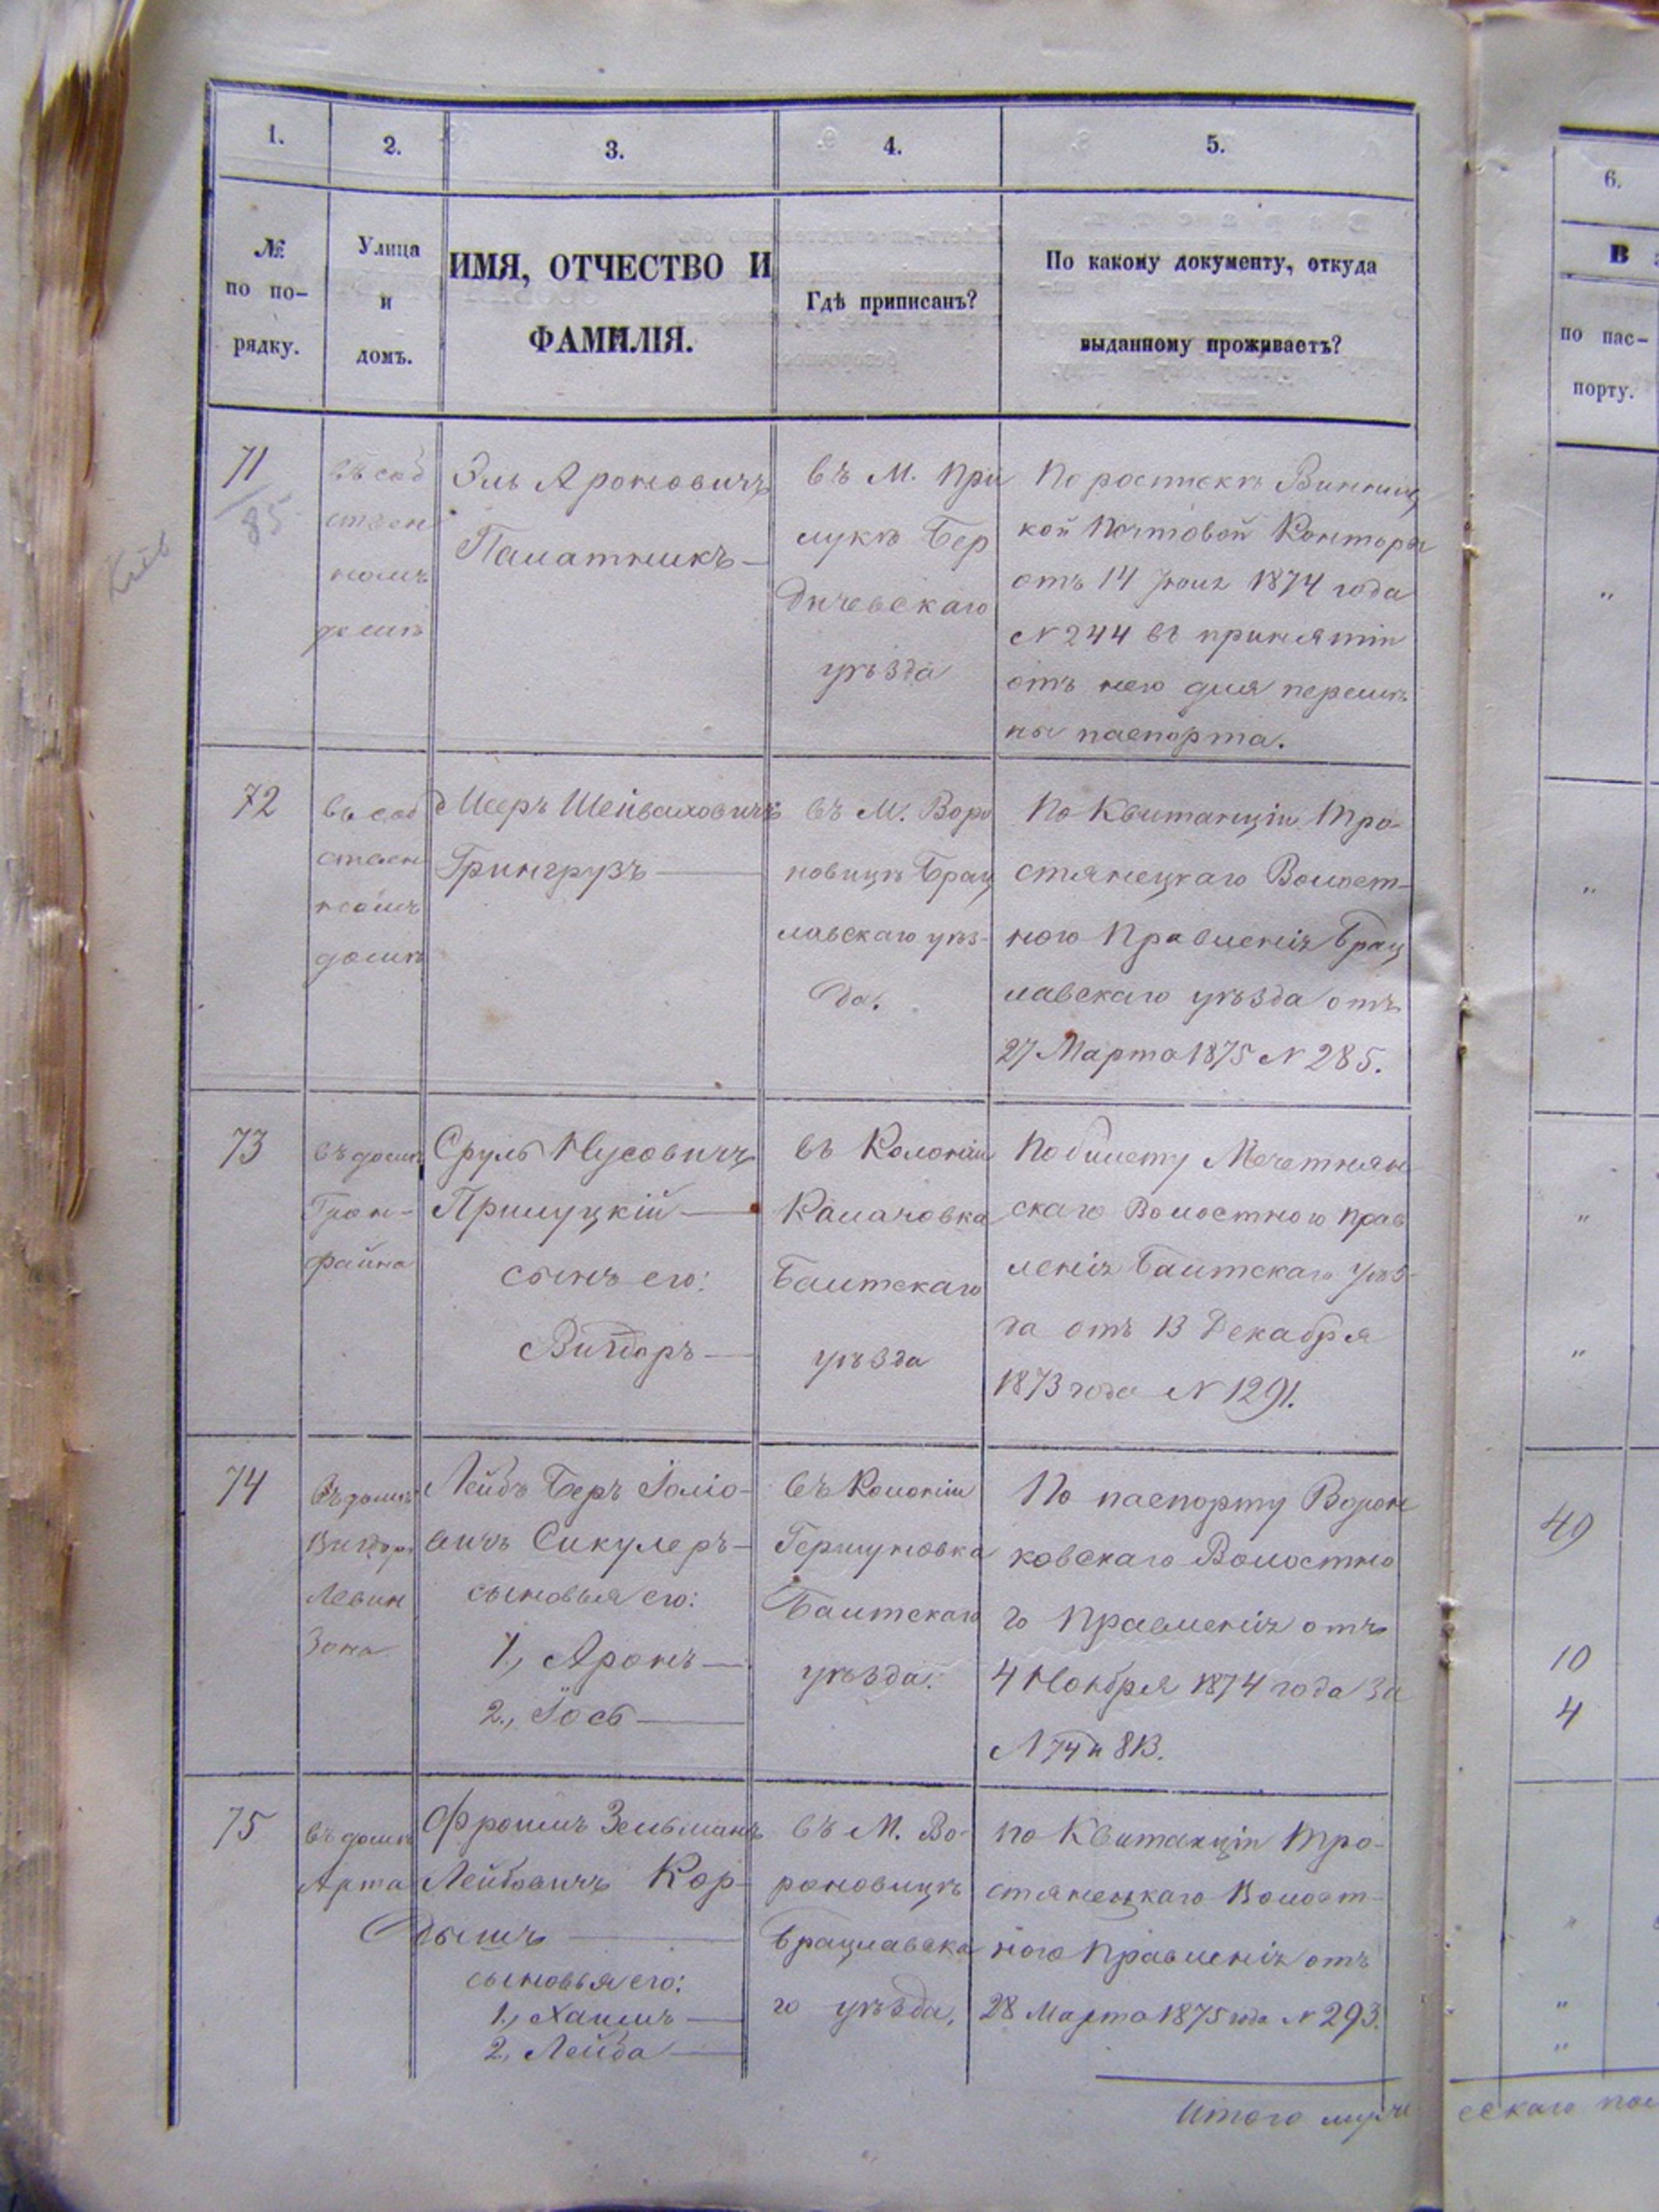 1.
2.
3.
4.
5.
№
по по-
рядку.
Улица
и
домъ.
ИМЯ, ОТЧЕСТВО И
ФАМИЛІЯ.
Гдѣ приписанъ?
По какому документу, откуда
выданному проживаетъ?
71
85
въ соб
ствен
номъ
домѣ
Эль Ароновичъ
Палатникъ —
въ М. При
лукѣ Бер
дичевскаго
уѣзда
По роспискѣ Винниц
кой Почтовой Конторы
отъ 14 1874 года
№ 244 въ принятіи
отъ него для перемѣ
ны паспорта.
72
въ соб
ствен
номъ
домѣ
Шейваховичъ
Грингрузъ —
въ М. Воро
новицѣ Брац
лавскаго уѣз-
да.
По Квитанціи Тро-
стянецкаго Волост-
ного Правленія Брац
лавскаго уѣзда отъ
27 Марта 1875 № 285.
73
въ домѣ
Грон-
файна
Сруль Нусовичъ
Прилуцкій —
сынъ его:
Вигдоръ —
въ Колоніи
Балтскаго
уѣзда
По билету Мечетнян-
скаго Волостного Прав
ленія Балтскаго Уѣз-
да отъ 13 Декабря
1873 года № 1291.
74
Въ домѣ
Вигдора
Левин
зона
Лейбъ Беръ
Сикулеръ —
сыновья его:
1., Аронъ —
2., Іось —
въ Колоніи
Гершуновка
Балтскаго
уѣзда.
По паспорту Ворон
ковскаго Волостно
го Правленія отъ
4 Ноября 1874 года за
№ 74 и 813.
75
въ домѣ
Арта
Фроимъ Зельманъ
Лейбовичъ Кор-
дышъ —
сыновья его:
1., Хаимъ —
2., Лейба —
въ М. Во-
роновицѣ
Брацлавска
го уѣзда,
по Квитанціи Тро-
стянецкаго Волост-
ного Правленія отъ
28 Марта 1875 года № 293.
Итого
6.
В
по пас-
порту.
"
"
"
"
40
10
4
"
"
"
ескаго пол